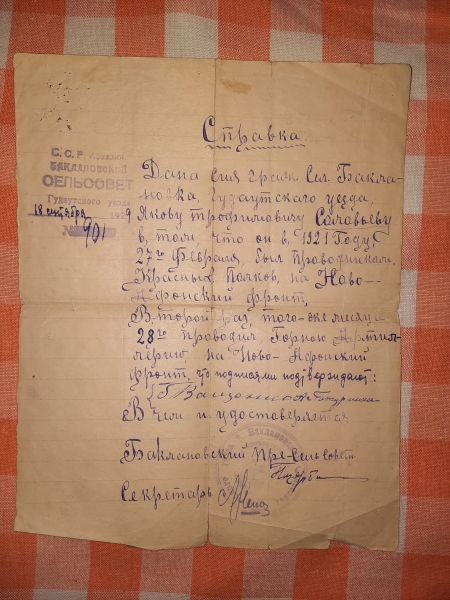 Справка.
С. С. Р. Абхазии
БАКЛАНОВСКОЙ
СЕЛЬСОВЕТ
Гудаутского уезда
18 сентября 192 9
№ 901
Дана сия граж. Сел. Бакла-
новка, Гудаутского уезда,
Якову трофимовичу Соловьеву
в том, что он в 1921 Году,
27го Февраля был проводником
Красных Полков, на Ново-
Афонский фронт,
Второй раз того-же месяца
28го проводил Горною Артил-
лерию, на Ново-Афонский
фронт, что подписями подтверждают:
В чем и удостоверяется
Баклановский Пре-сельсовет
Секретарь